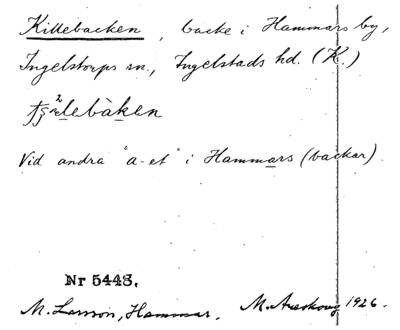 Killebacken, backe i Hammars by,
Ingelstorps sn., Ingelstads hd. (K.)
Vid andra "a-et" i Hammars (backar).
Nr 5443.
M. Larsson, Hammar. M. Areskoug 1926.